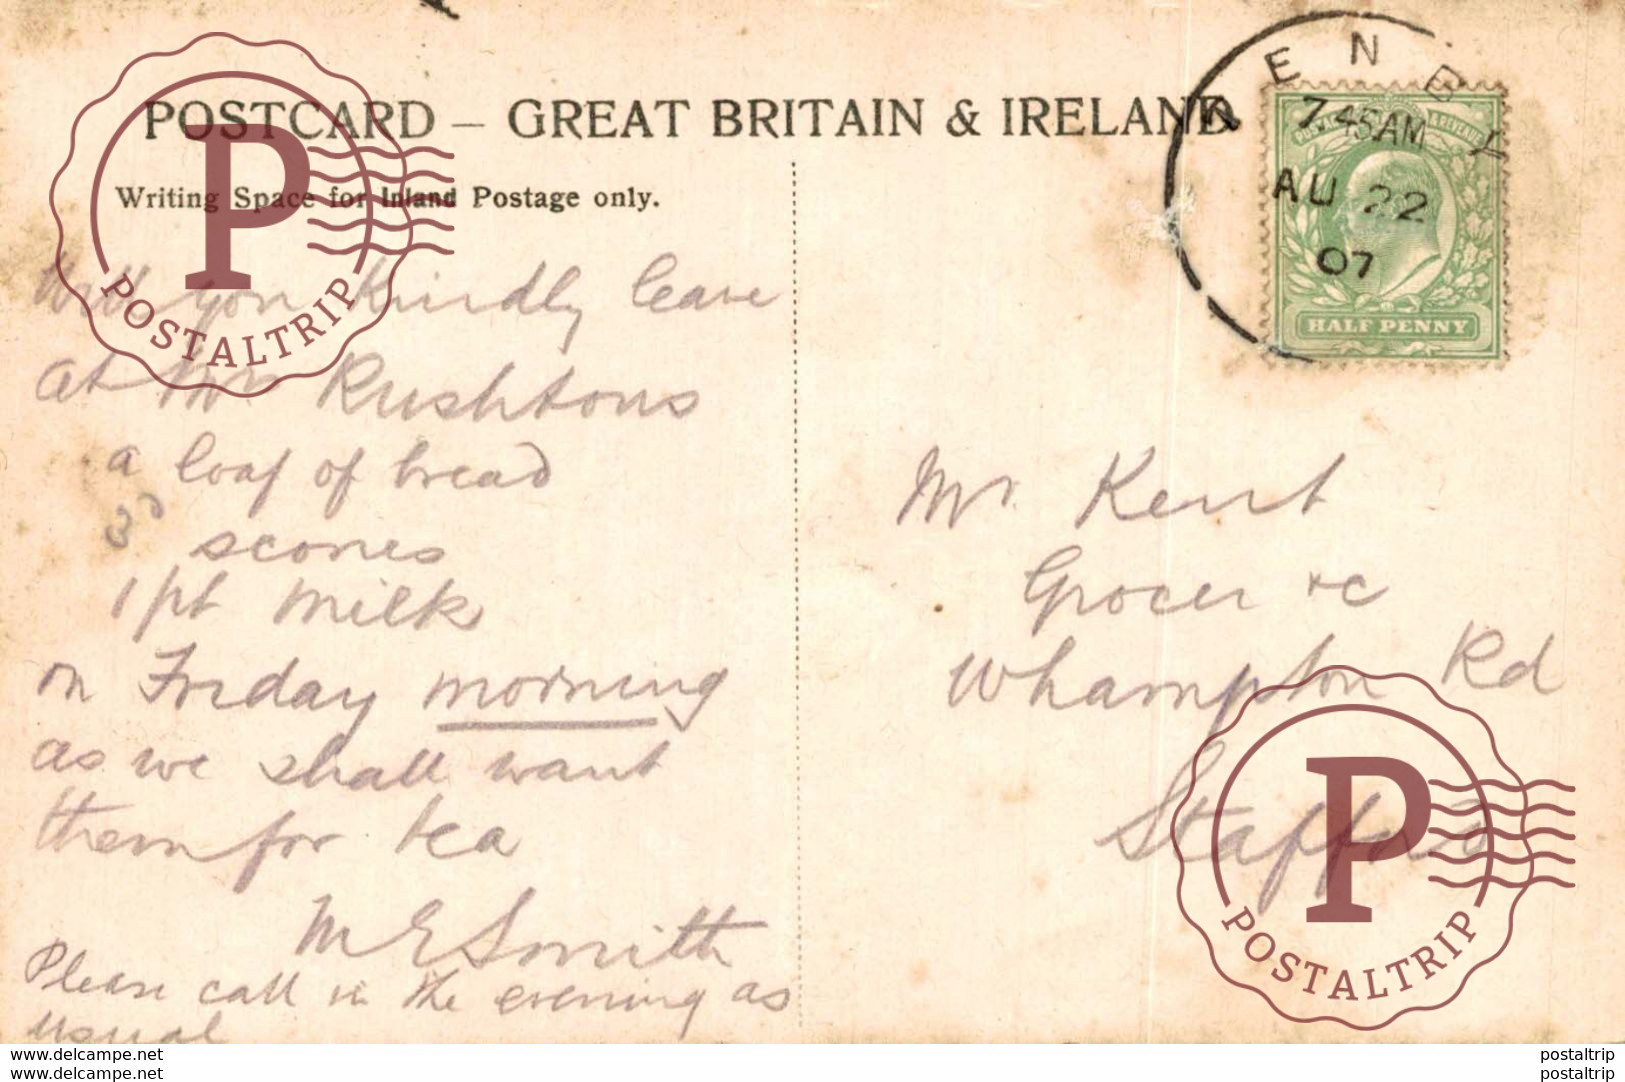 POSTCARD – GREAT BRITAIN & IRELAND
Writing Space for Inland Postage only.
Will you kindly leave
at Mrs Rushtons
a loaf of bread
3d scones
1 pt milk
on Friday morning
as we shall want
them for tea
M E Smith
Please call in the evening as
usual
K E N B Y
7.45AM
AU 22
07
POSTAGE & REVENUE
HALF PENNY
Mr. Kent
Grocer &c
Whampton Rd
Stafford
P
POSTALTRIP
P
POSTALTRIP
www.delcampe.net
postaltrip
www.delcampe.net
postaltrip